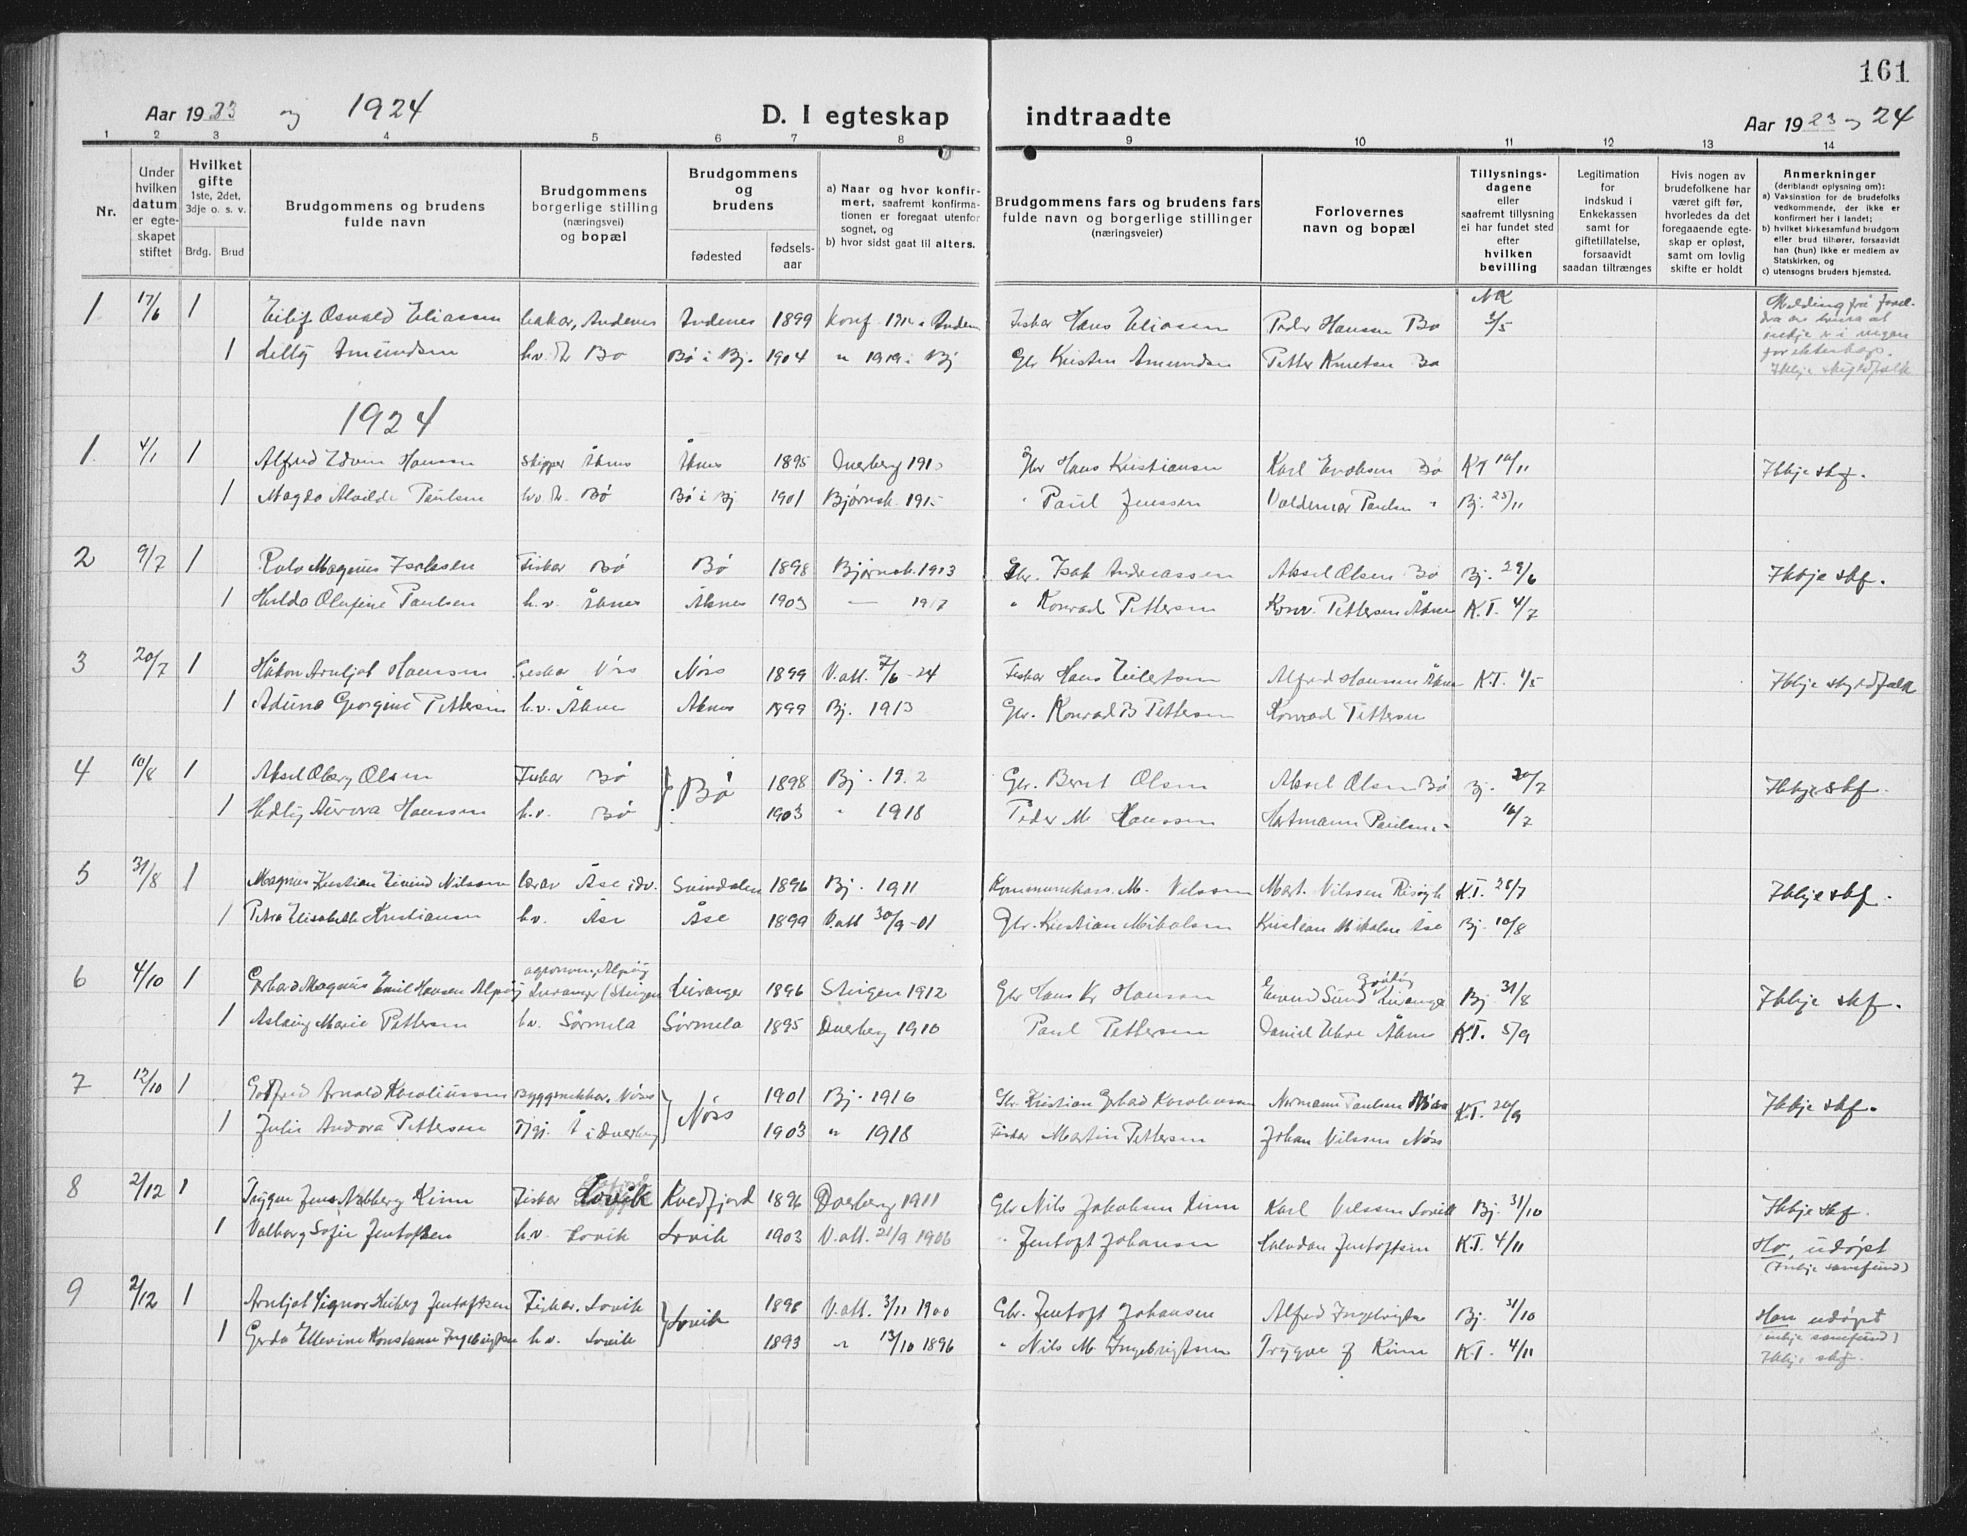 161
Aar 1923 og 1924
D. I egteskap indtraadte
Aar 1923 og 24
1 2 3 4 5 6 7 8 9 10 11 12 13 14
Nr.
Under hvilken datum er egteskapet stiftet
Hvilket gifte 1ste, 2det, 3dje o. s. v.
Brdg. Brud
Brudgommens og brudens fulde navn
Brudgommens borgerlige stilling (næringsvei) og bopæl
Brudgommens og brudens
fødested
fødselsaar
a) Naar og hvor konfirmert, saafremt konfirmationen er foregaat utenfor sognet, og
b) hvor sidst gaat til alters.
Brudgommens fars og brudens fars fulde navn og borgerlige stillinger (næringsveier)
Forlovernes navn og bopæl
Tillysningsdagene eller saafremt tillysning ei har fundet sted efter hvilken bevilling
Legitimation for indskud i Enkekassen samt for giftetillatelse, forsaavidt saadan tiltrænges
Hvis nogen av brudefolkene har været gift før, hvorledes da det foregaaende egteskap er opløst, samt om lovlig skifte er holdt
Anmerkninger (deriblandt oplysning om):
a) Vaksination for de brudefolks vedkommende, der ikke er konfirmert her i landet;
b) hvilket kirkesamfund brudgom eller brud tilhører, forsaavidt han (hun) ikke er medlem av Statskirken, og
c) utensogns bruders hjemsted.
1 17/6 1 Eilif Osvald Eliassen bakar, Andenes Andenes 1899 Konf. Fiskar Hans Eliassen Peder Hanssen Bø
1 Lilly Amundsen Bø Bø i Bj. 1904 " 1919 i Bj Gbr Kristen Amundsen Petter Knutsen Bø
1924
1 4/1 1 Alfred Edvin Hansen skipper Åknes Åknes 1895 Dverberg Gbr Hans Kristiansen Karl Enoksen Bø KT 10/11 Ikkje skf.
1 Magda Alvilde Paulsen Bø Bø i Bj 1901 Bjørnsk. " Paul Jenssen Valdemar Paulsen " Bj. 25/11
2 9/7 1 Magnus Isaksen Fiskar Bø Bø 1898 Bjørnsk. 1913 Gbr. Isak Andreassen Aksel Olsen Bø Bj. 29/6 Ikkje skf.
1 Hilda Olufine Paulsen h.v. Åknes Åknes 1903 — 1917 " Konrad Pettersen Konr. Pettersen Åknes K.T. 4/7
3 20/7 1 Håkon Arnljot Hansen Fiskar Nøss Nøss 1899 V.att. 7/6-24 Fiskar Hans Eilertsen Alfred Hansen Åknes K.T. Ikkje skyldfolk
1 Georgine Pettersen h.v. Åknes Åknes 1899 Bj. 1913 Gbr. Konrad B Pettersen Konrad Pettersen
4 10/8 1 Aksel Olsen Fiskar Bø Bø 1898 Bj. Gbr. Bernt Olsen Aksel Olsen Bø Bj. 20/7 Ikkje skf.
1 Hedly Aurora Hanssen h.v. Bø 1903 " 1918 Peder M. Hanssen Hartmann Paulsen "
5 31/8 1 Magnus Kristian Eivind Nilssen lærar Åse i Dv. Svindalen 1896 Bj. 1911 M. Nilssen Mart. Nilssen K.T. 28/7 Ikkje skf.
1 Petra Elisabeth Kristiansen h.v. Åse Åse 1899 V.att 30/9-01 Gbr. Kristian Mikalsen Kristian Mikalsen Åse Bj. 10/8
6 4/10 1 Gerhard Magnus Emil Hansen Leiranger (Steigen Leiranger 1896 Steigen 1912 Gbr Hans Kr Hanson Eivind Sund Leiranger Bj 31/8 Ikkje skf.
1 Aslaug Marie Pettersen h.v. Sørmela Sørmela 1895 Dverberg 1910 Paul Pettersen Daniel Åknes K.T. 5/9
7 12/10 1 Godfred Arnold Karoliussen Byggsnikkar, Nøss Nøss 1901 Bj. 1916 Gbr. Kristian Karoliussen Normann Paulsen Nøss K.T. 20/9 Ikkje skf.
1 Julie Andora Pettersen i Dverberg 1903 " 1918 Fiskar Martin Pettersen Johan Nilssen Nøss
8 2/12 1 Trygve Jens Kinn Fiskar Lovik Kvedfjord 1896 Dverberg 1911 Gbr Nils Jakobsen Kinn Karl Nilssen Lovik Bj. 31/10 Ikkje skf.
1 Valborg Sofie Jentoftsen h.v. Lovik Lovik 1903 V.att. 21/9 1906 " Jentoft Johansen Halvdan Jentoftsen K.T. 4/11 Ho udøpt
9 2/12 1 Arnljot Signor Jentoftsen Fiskar. Lovik Lovik 1898 V.att. 3/11 1900 Gbr. Jentoft Johansen Alfred Ingebrigtsen Bj. 31/10 Han udøpt
(inkje samfund)
1 Gerda Ellevine Konstanse Ingebrigtsen h.v. Lovik 1893 " 13/10 1896 " Nils M Ingebrigtsen Trygve J Kinn K.T. 4/11 Ikkje skf.